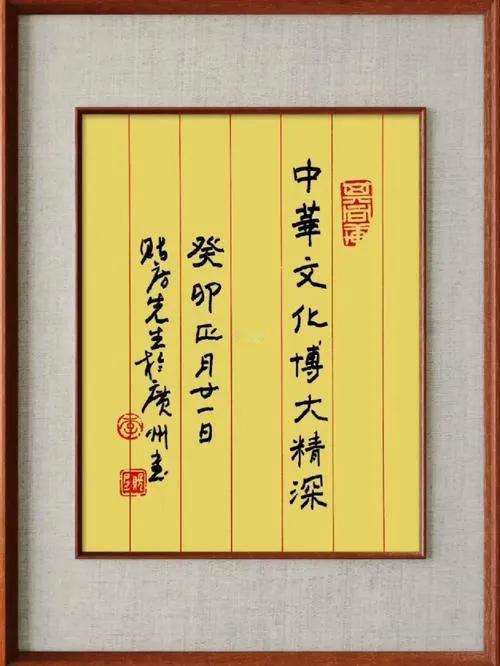 中華文化博大精深
癸卯正月廿一日
財房先生於廣州書
李